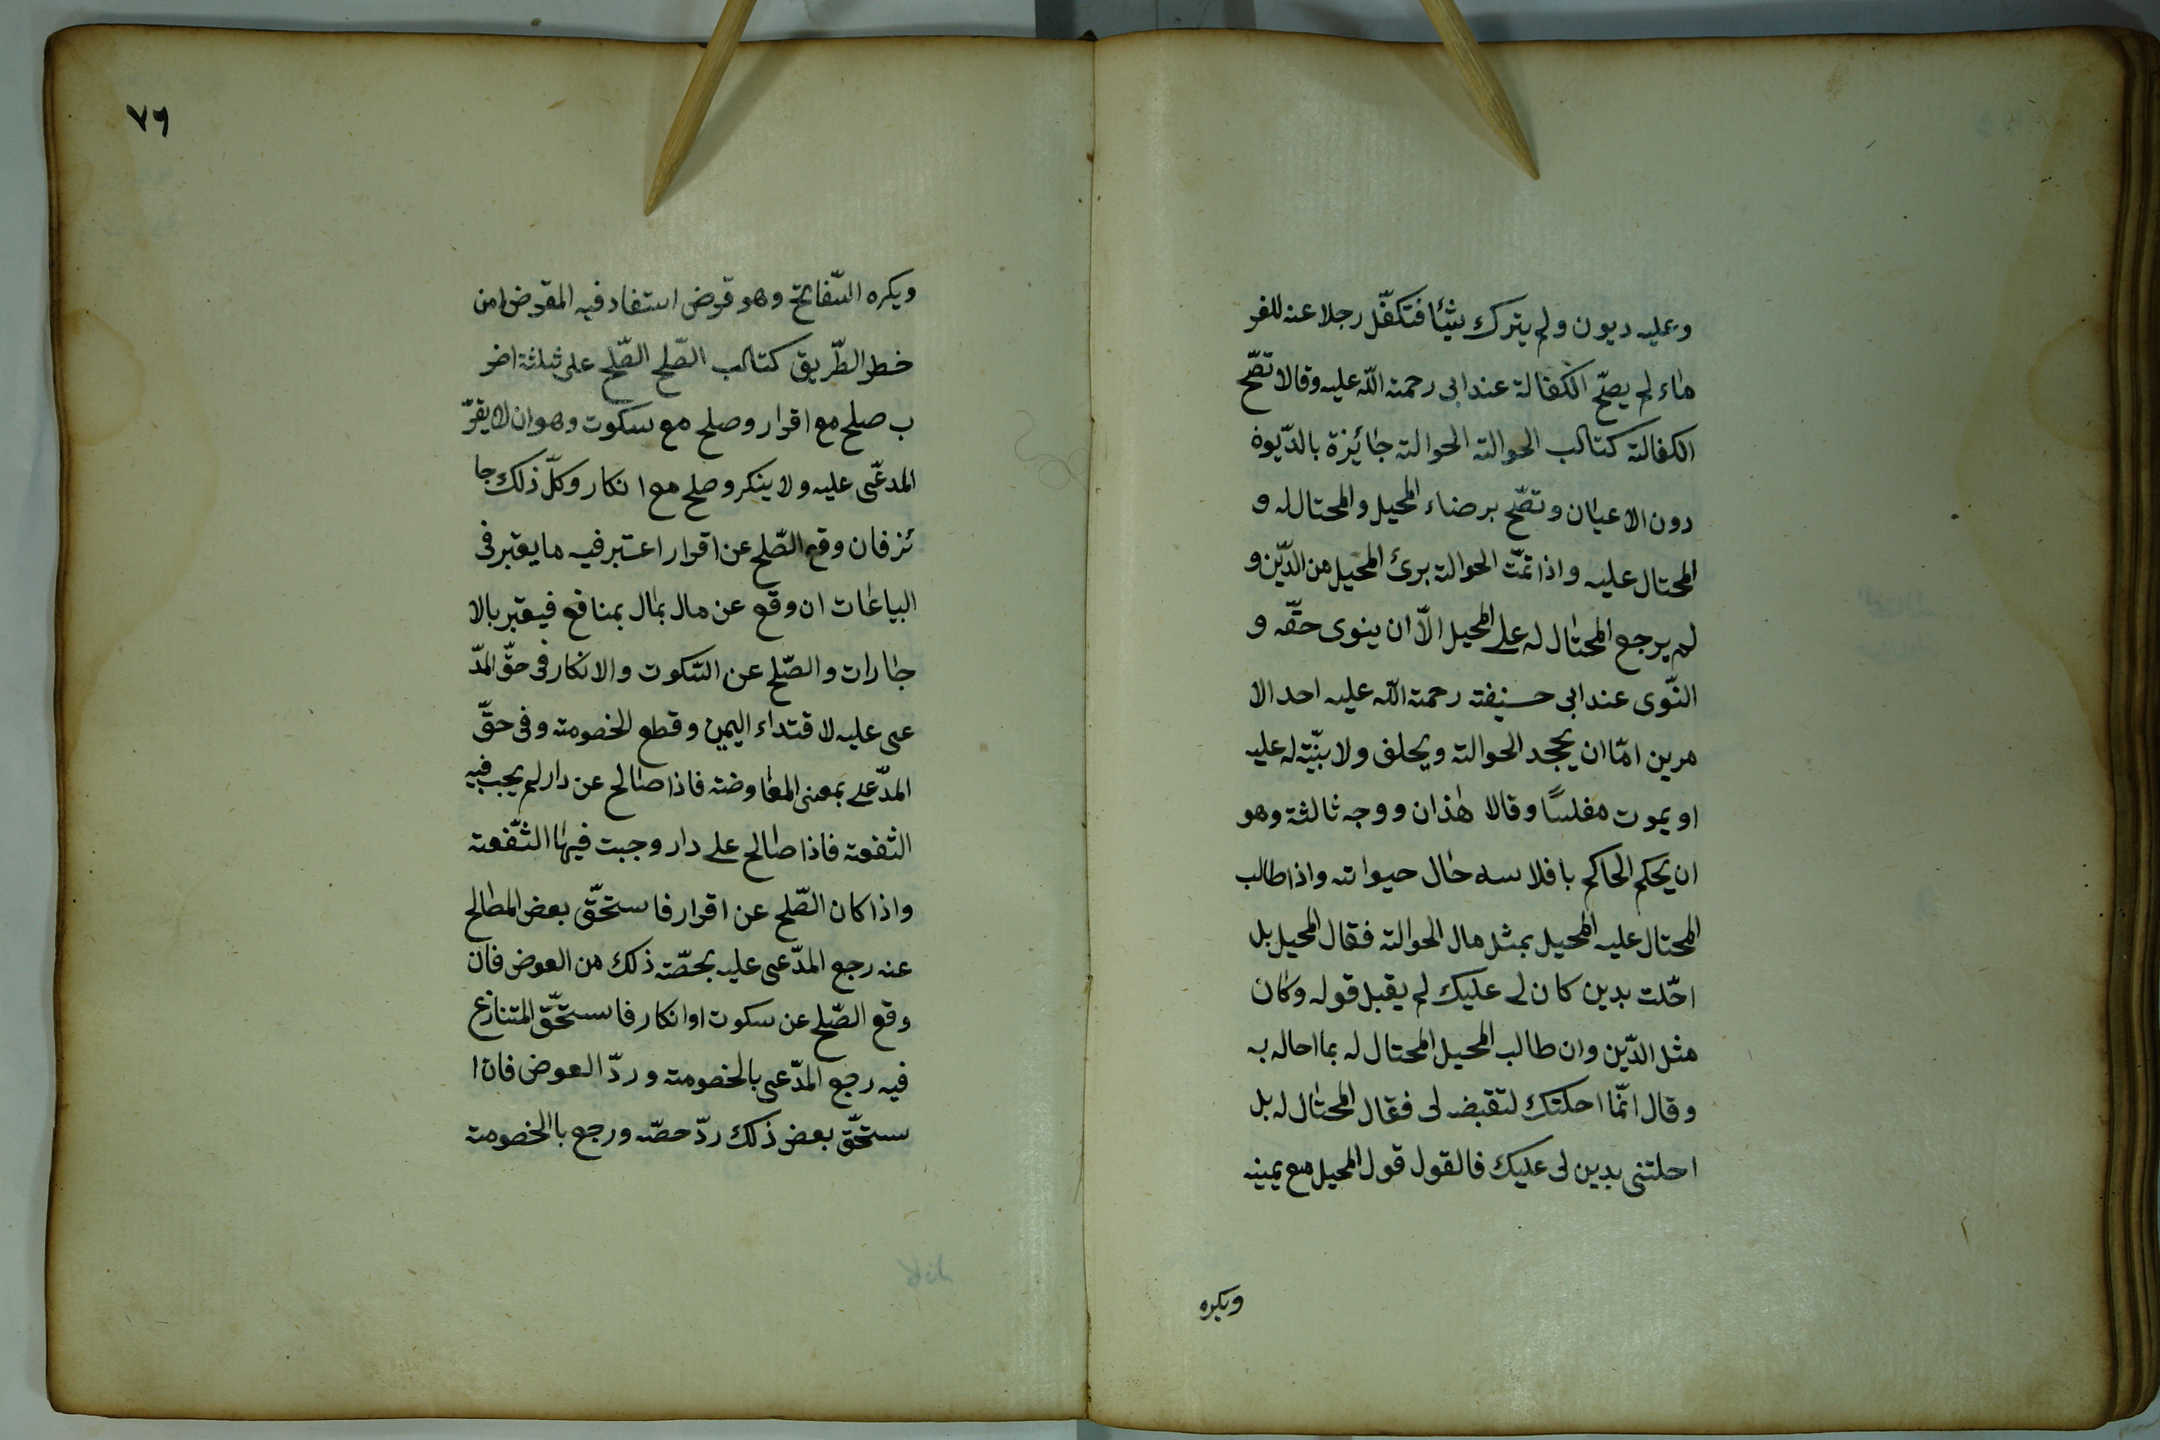 وعليه ديون ولم يترك شيئا فتكفّل رجلا عنه للغر
ماء لم يصحّ الكفالة عند ابى رحمة اللّه عليه وقالا تصّح
الكفالة كتاب الحوالة الحوالة جائيزة بالدّيون
دون الاعيان وتصّح برضاء المحيل والمحتال له و
المحتال عليه واذا تمّت الحوالة برئ المحيل من الدّين و
لم يرجع المحتال له على المحيل الّا ان ينوى حقّه و
النّوى عند ابى حنيفة رحمة اللّه عليه احد الا
مرين امّا ان يجحد الحوالة ويحلف ولا بيّنة له عليه
او يموت مفلسًا وقالا هٰذان ووجه ثالثة وهو
ان يحكم الحاكم بافلاسه حال حيواته واذا طالب
المحتال عليه المحيل بمثل مال الحوالة فقال المحيل بل
احّلت بدين كان لى عليك لم يقبل قوله وكان
مثل الدّين وان طالب المحيل المحتال له بما احاله به
وقال انّما احلتك لتقبضه لى فقال المحتال له بل
احلتنى بدين لى عليك فالقول قول المحيل مع يمينه
ويكره
٧٦
ويكره السّفاتج وهو قرض استفاد فيه المقرض امن
خطر الطّريق كتاب الصّلح الصّلح على ثلثة اضر
ب صلح مع اقرار وصلح مع سكوت وهو ان لا يقرّ
المدعّى عليه ولا ينكر وصلح مع انكار وكلّ ذلك جا
ئز فان وقع الصّلح عن اقرار اعتبر فيه ما يعتبر فى
البياعات ان وقع عن مال بمال بمنافع فيعتبر بالا
جارات والصّلح عن السّكوت والانكار فى حقّ المدّ
عى عليه لاقتداء اليمين وقطع الخصومة وفى حقّ
المدّعى بمعنى المعاوضة فاذا صالح عن دار لم يجب فيه
الشفعة فاذا صالح على دار وجبت فيها الشّفعة
واذا كان الصّلح عن اقرار فاستحّق بعض المطالح
عنه رجع المدّعى عليه بحصّة ذلك من العوض فان
وقع الصّلح عن سكوت او انكار فاستحّق المتنازع
فيه رجع المدّعى بالخصومة وردّ العوض فان ا
ستحّق بعض ذلك ردّ حصّه ورجع باالخصومة